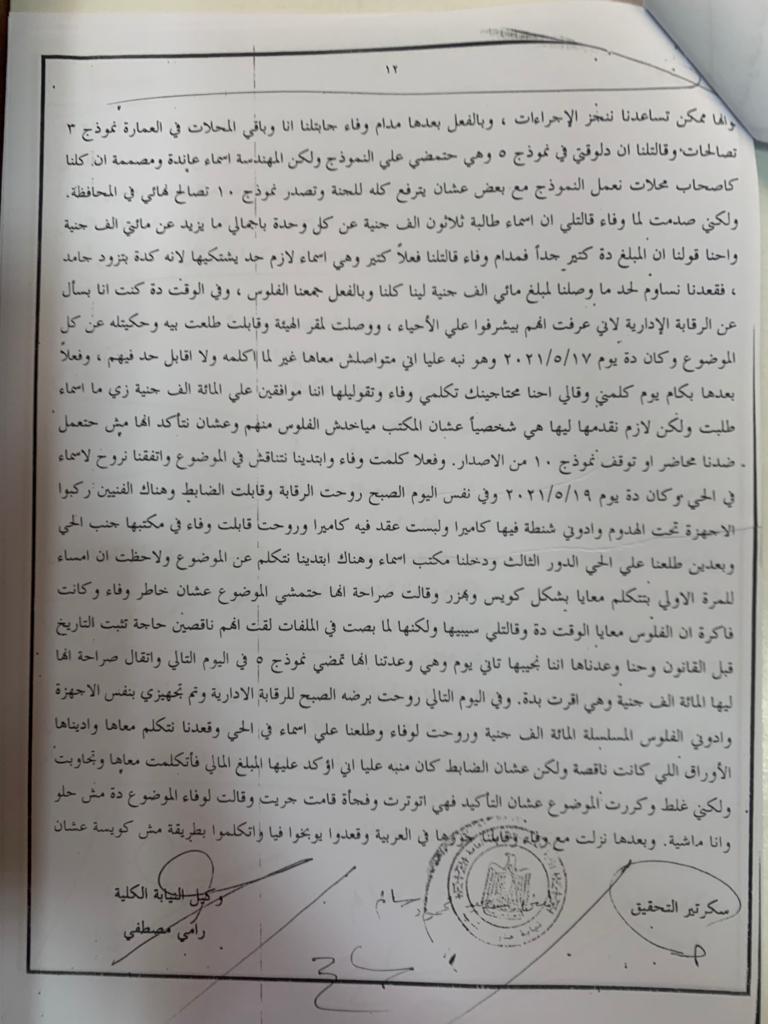 ١٢
وانها ممكن تساعدنا ننجز الإجراءات ، وبالفعل بعدها مدام وفاء جابتلنا انا وباقي المحلات في العمارة نموذج ٣
تصالحات وقالتلنا ان دلوقتي في نموذج ٥ وهي حتمضي علي النموذج ولكن المهندسة اسماء عاندة ومصممة ان كلنا
كاصحاب محلات نعمل النموذج مع بعض عشان يترفع كله للجنة وتصدر نموذج ١٠ تصالح نهائي في المحافظة.
ولكني صدمت لما وفاء قالتلي ان اسماء طالبة ثلاثون الف جنية عن كل وحدة باجمالي ما يزيد عن مائتي الف جنية
واحنا قولنا ان المبلغ دة كتير جداً فمدام وفاء قالتلنا فعلاً كتير وهي اسماء لازم حد يشتكيها لانه كدة بتزود جامد
، فقعدنا نساوم لحد ما وصلنا لمبلغ مائي الف جنية لينا كلنا وبالفعل جمعنا الفلوس ، وفي الوقت دة كنت انا بسأل
عن الرقابة الإدارية لاني عرفت انهم بيشرفوا علي الأحياء ، ووصلت لمقر الهيئة وقابلت طلعت بيه وحكيتله عن كل
الموضوع وكان دة يوم ٢٠٢١/٥/١٧ وهو نبه عليا اني متواصلش معاها غير لما اكلمه ولا اقابل حد فيهم ، وفعلاً
بعدها بكام يوم كلمني وقالي احنا محتاجينك تكلمي وفاء وتقوليلها اننا موافقين علي المائة الف جنية زي ما اسماء
طلبت ولكن لازم نقدمها ليها هي شخصياً عشان المكتب مياخدش الفلوس منهم وعشان نتأكد انها مش حتعمل
ضدنا محاضر او توقف نموذج ١٠ من الاصدار. وفعلا كلمت وفاء وابتدينا نتناقش في الموضوع واتفقنا نروح لاسماء
في الحي وكان دة يوم ٢٠٢١/٥/١٩ وفي نفس اليوم الصبح روحت الرقابة وقابلت الضابط وهناك الفنيين ركبوا
الاجهزة تحت الهدوم وادوني شنطة فيها كاميرا ولبست عقد فيه كاميرا وروحت قابلت وفاء في مكتبها جنب الحي
وبعدين طلعنا علي الحي الدور الثالث ودخلنا مكتب اسماء وهناك ابتدينا نتكلم عن الموضوع ولاحظت ان امساء
للمرة الاولي بتتكلم معايا بشكل كويس وبهزر وقالت صراحة انها حتمشي الموضوع عشان خاطر وفاء وكانت
فاكرة ان الفلوس معايا الوقت دة وقالتلي سيبيها ولكنها لما بصت في الملفات لقت انهم ناقصين حاجة تثبت التاريخ
قبل القانون وحنا وعدناها اننا نجيبها تاني يوم وهي وعدتنا انها تمضي نموذج ٥ في اليوم التالي واتقال صراحة انها
ليها المائة الف جنية وهي اقرت بدة. وفي اليوم التالي روحت برضه الصبح للرقابة الادارية وتم تجهيزي بنفس الاجهزة
وادوني الفلوس المسلسلة المائة الف جنية وروحت لوفاء وطلعنا علي اسماء في الحي وقعدنا نتكلم معاها واديناها
الأوراق اللي كانت ناقصة ولكن عشان الضابط كان منبه عليا اني اؤكد عليها المبلغ المالي فأتكلمت معاها وتجاوبت
ولكني غلط وكررت الموضوع عشان التأكيد فهي اتوترت وفجأة قامت جريت وقالت لوفاء الموضوع دة مش حلو
وانا ماشية. وبعدها نزلت مع وفاء وقابلنا جوزها في العربية وقعدوا يوبخوا فيا واتكلموا بطريقة مش كويسة عشان
سكرتير التحقيق
وكيل النيابة الكلية
رامي مصطفي